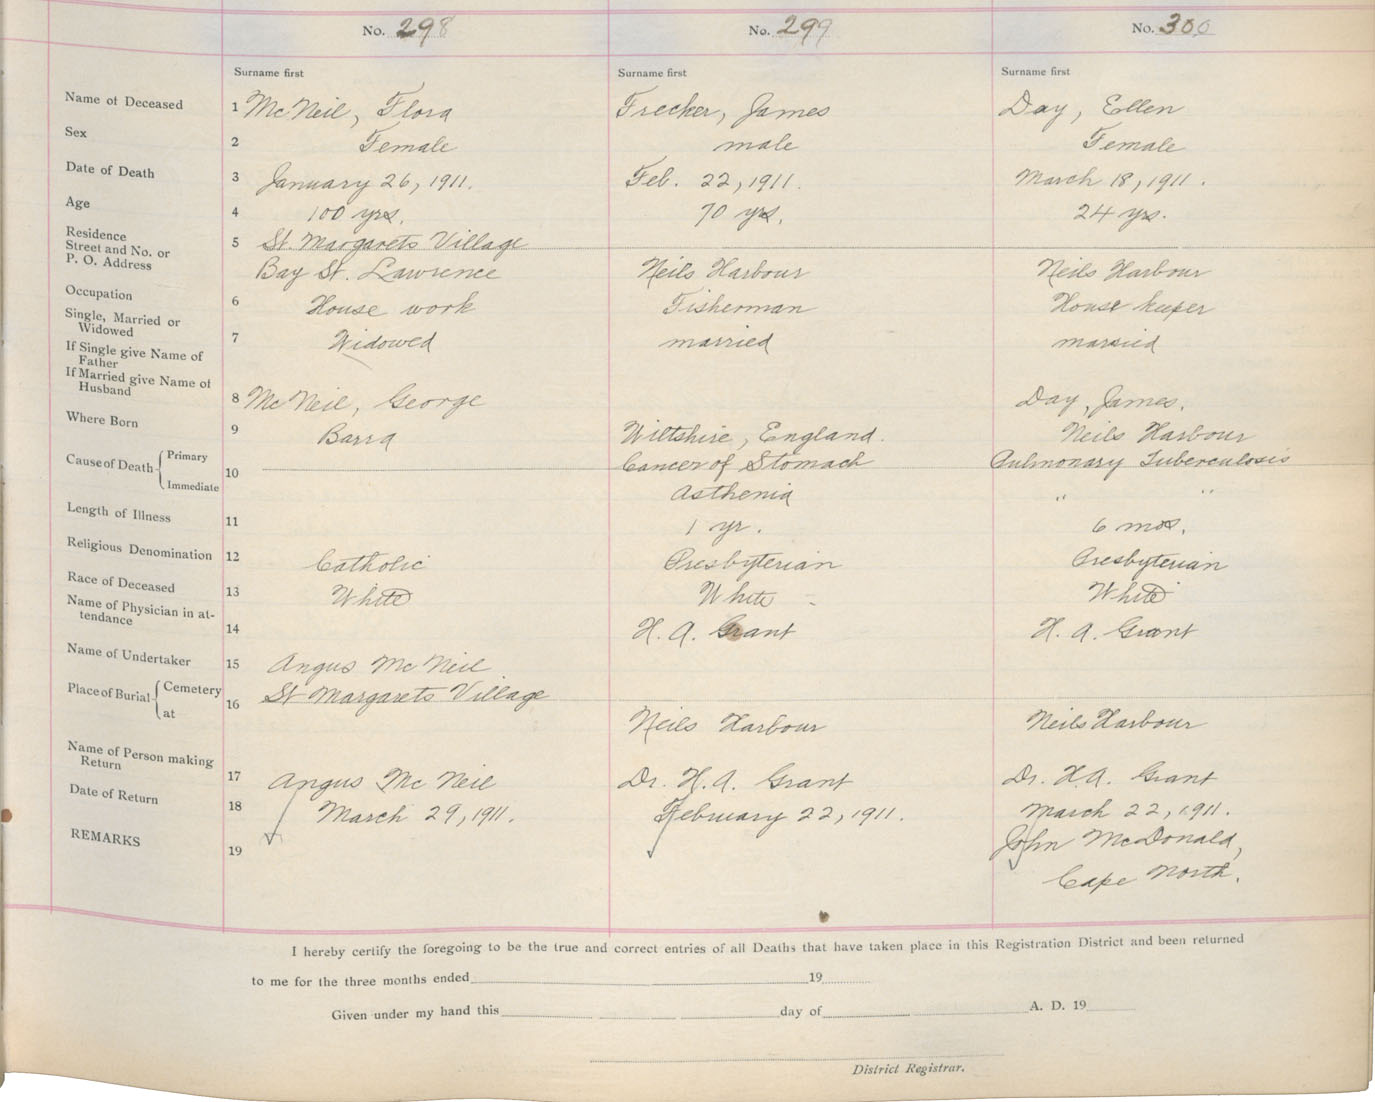 No. 298 No. 299 No. 300
Surname first Surname first Surname first
Name of Deceased 1 McNeil, Flora Frecker, James Day, Ellen
Sex 2 Female male Female
Date of Death 3 January 26, 1911. Feb. 22, 1911. March 18, 1911.
Age 4 100 yrs. 70 yrs. 24 yrs.
Residence
Street and No. or 5 St. Margarets Village
P. O. Address Bay St. Lawrence Neils Harbour Neils Harbour
Occupation 6 House work Fisherman House keeper
Single, Married or
Widowed 7 Widowed married married
If Single give Name of
Father
If Married give Name of
Husband 8 McNeil, George Day, James.
Where Born 9 Barra Wiltshire, England. Neils Harbour
Cause of Death Primary 10 Cancer of Stomach Pulmonary Tuberculosis
Immediate Asthenia " "
Length of Illness 11 1 yr. 6 mos.
Religious Denomination 12 Catholic Presbyterian Presbyterian
Race of Deceased 13 White White White
Name of Physician in at-
tendance 14 H. A. Grant H. A. Grant
Name of Undertaker 15 Angus McNeil
Place of Burial Cemetery 16 St Margarets Village
at Neils Harbour Neils Harbour
Name of Person making
Return 17 Angus McNeil Dr. H. A. Grant Dr. H. A. Grant
Date of Return 18 March 29, 1911. February 22, 1911. March 22, 1911.
REMARKS 19 John McDonald,
Cape North.
I hereby certify the foregoing to be the true and correct entries of all Deaths that have taken place in this Registration District and been returned
to me for the three months ended 19
Given under my hand this day of A. D. 19
District Registrar.